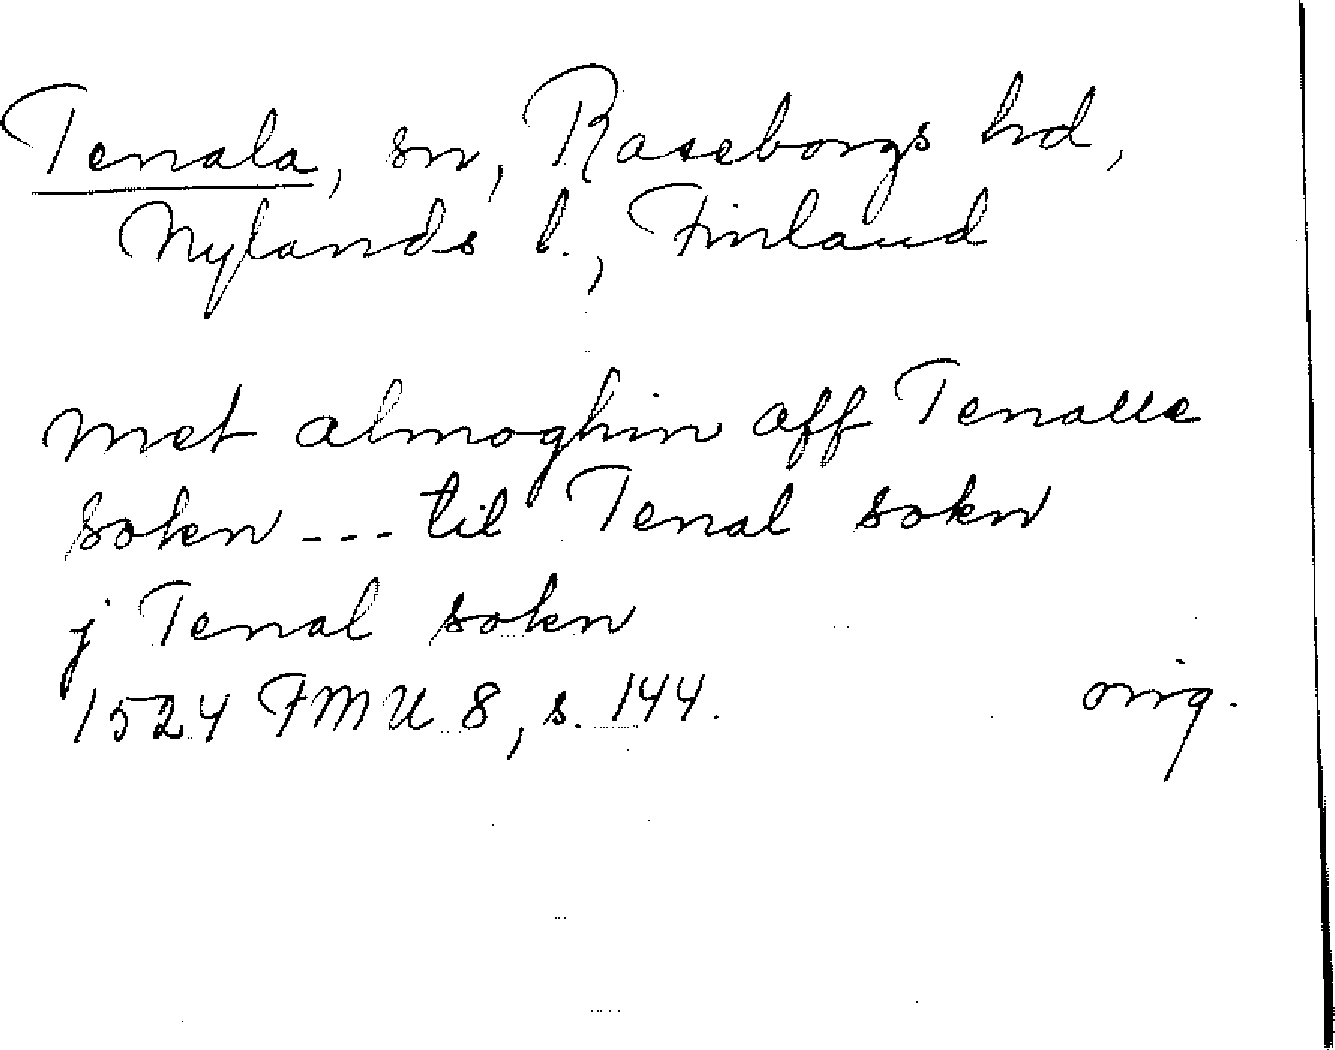 Tenala, sn, Raseborgs hd,
Nylands l., Finland
met almoghin aff Tenalle
sokn --- til Tenal sokn
j Tenal sokn
1524 FMU 8, s. 144. orig.